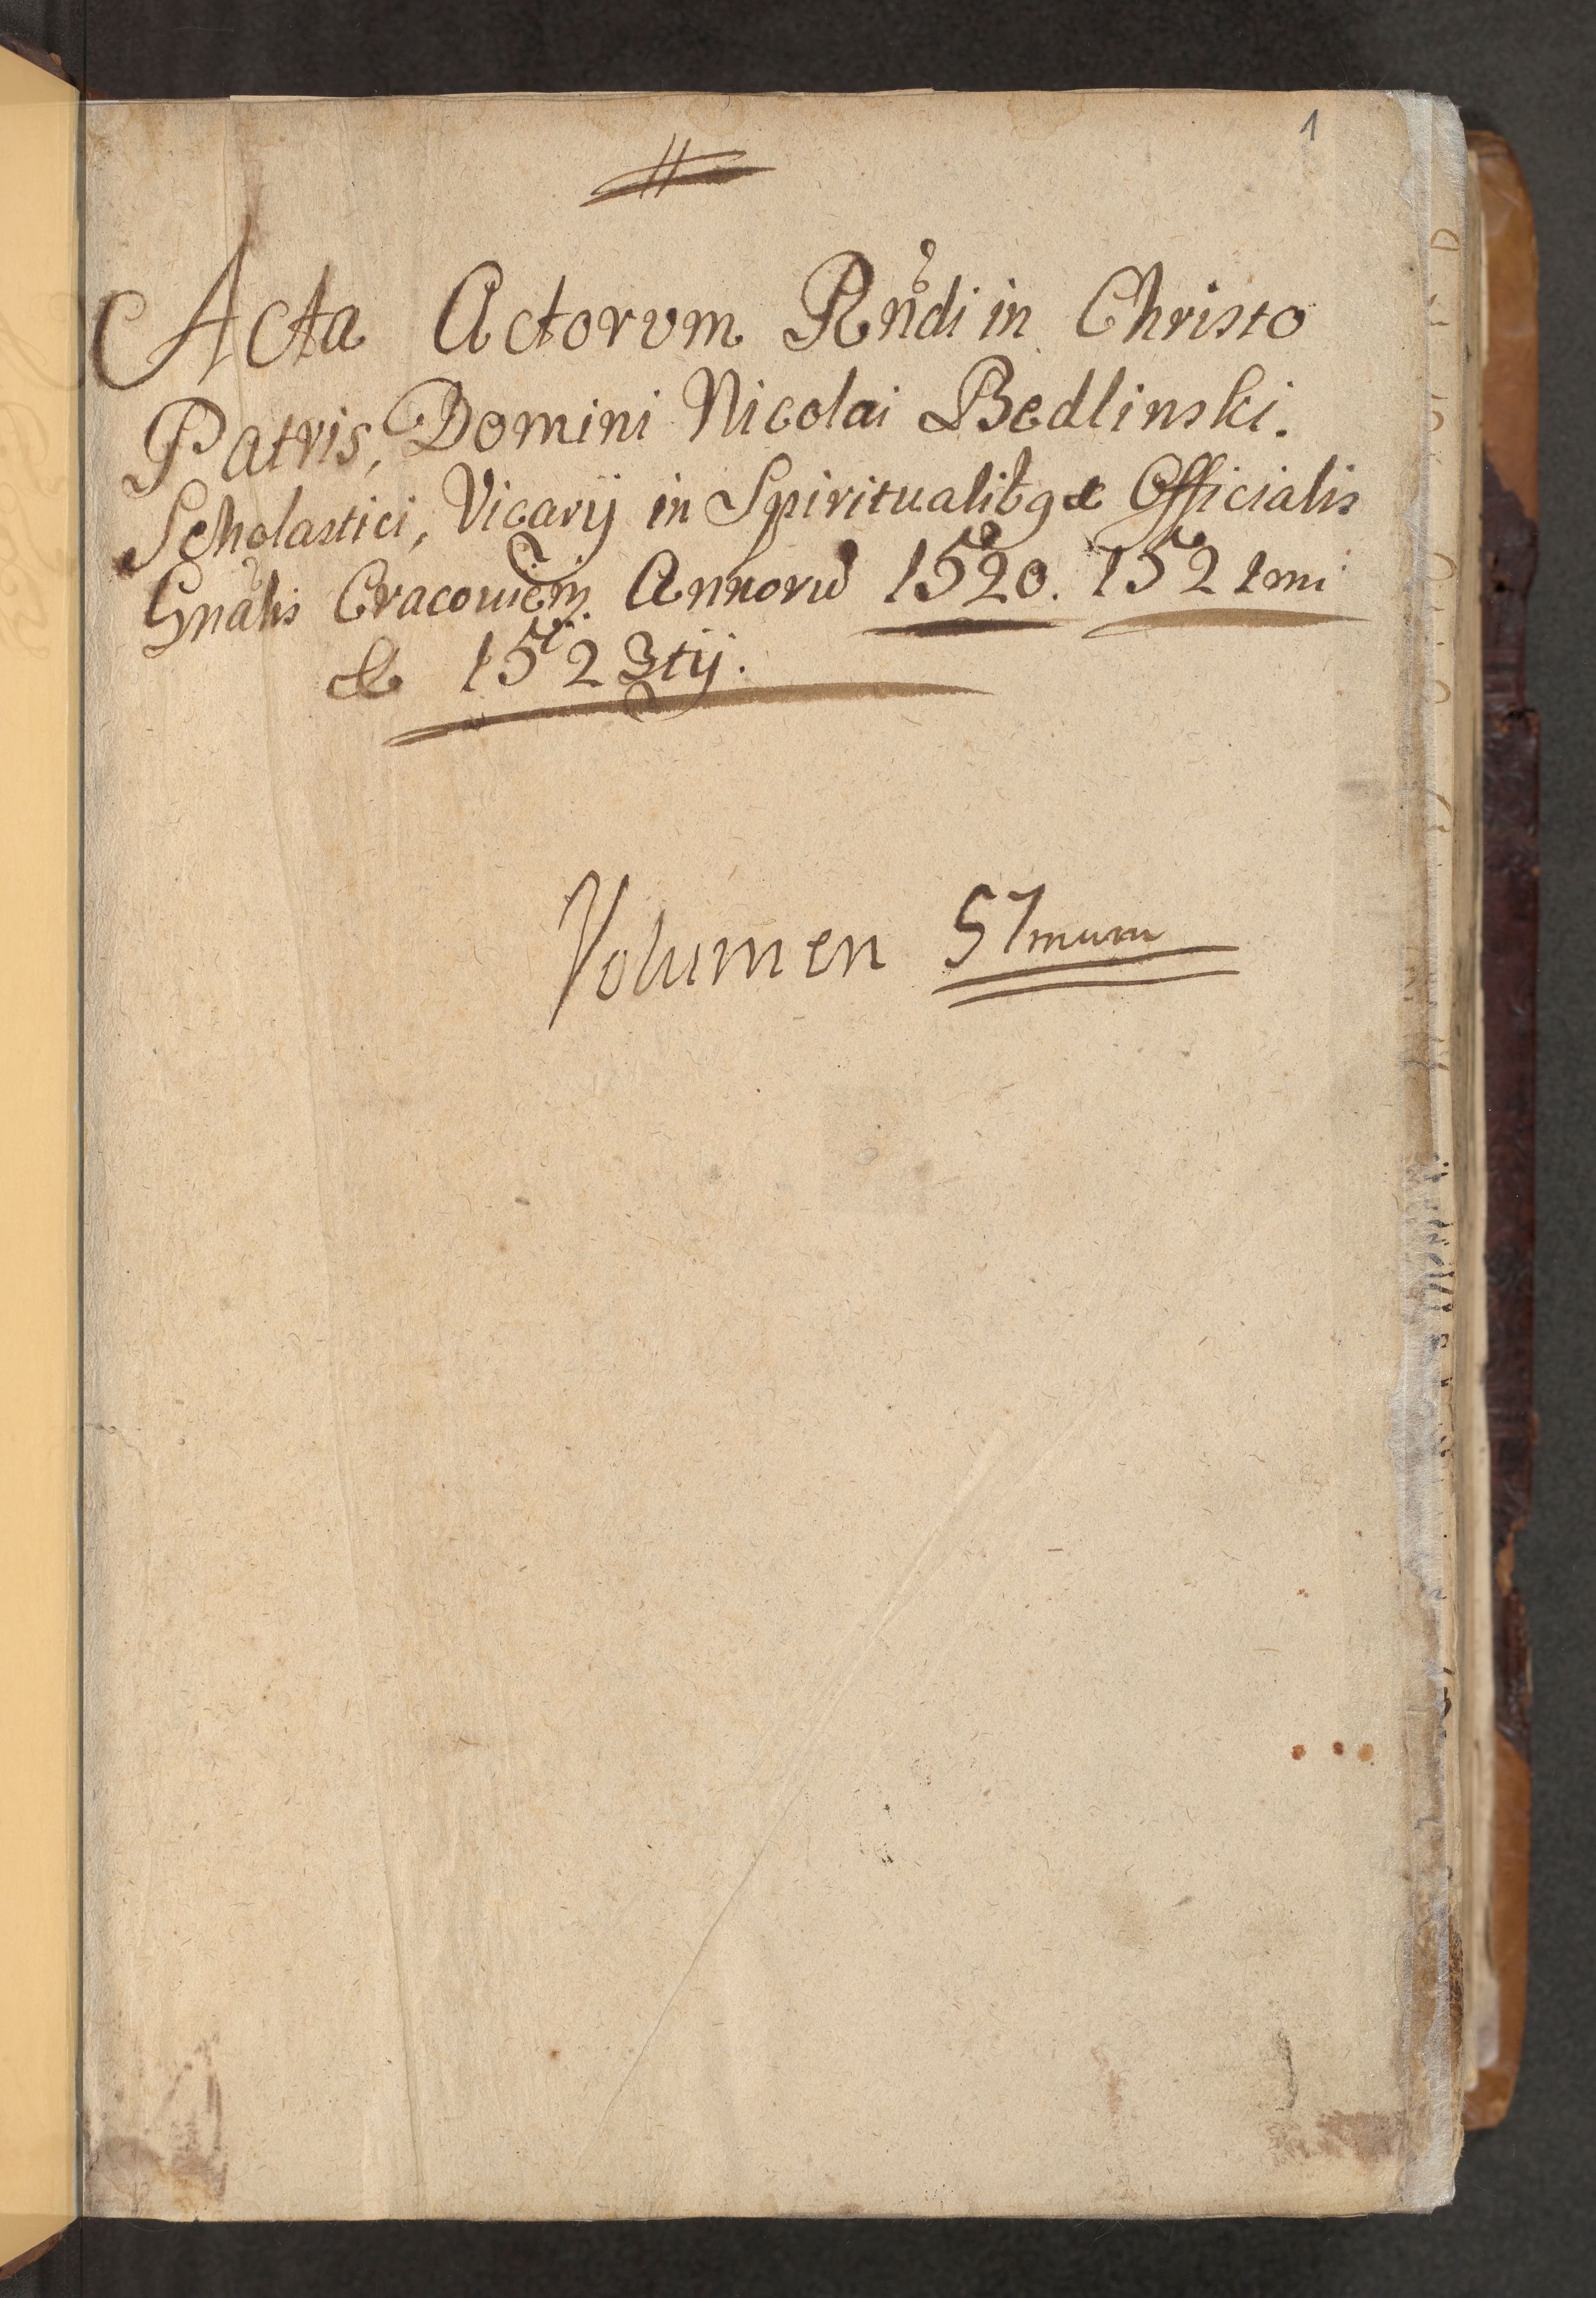 1
Acta Actorum Rndi in Christo
Patris, Domini Nicolai Bedlinski.
Scholastici, Vicarij in Spiritualibq et Officialis
Gnalis Cracouien. Annorū 1520. 1521mi
& 1523tij.
Volumen 57mum